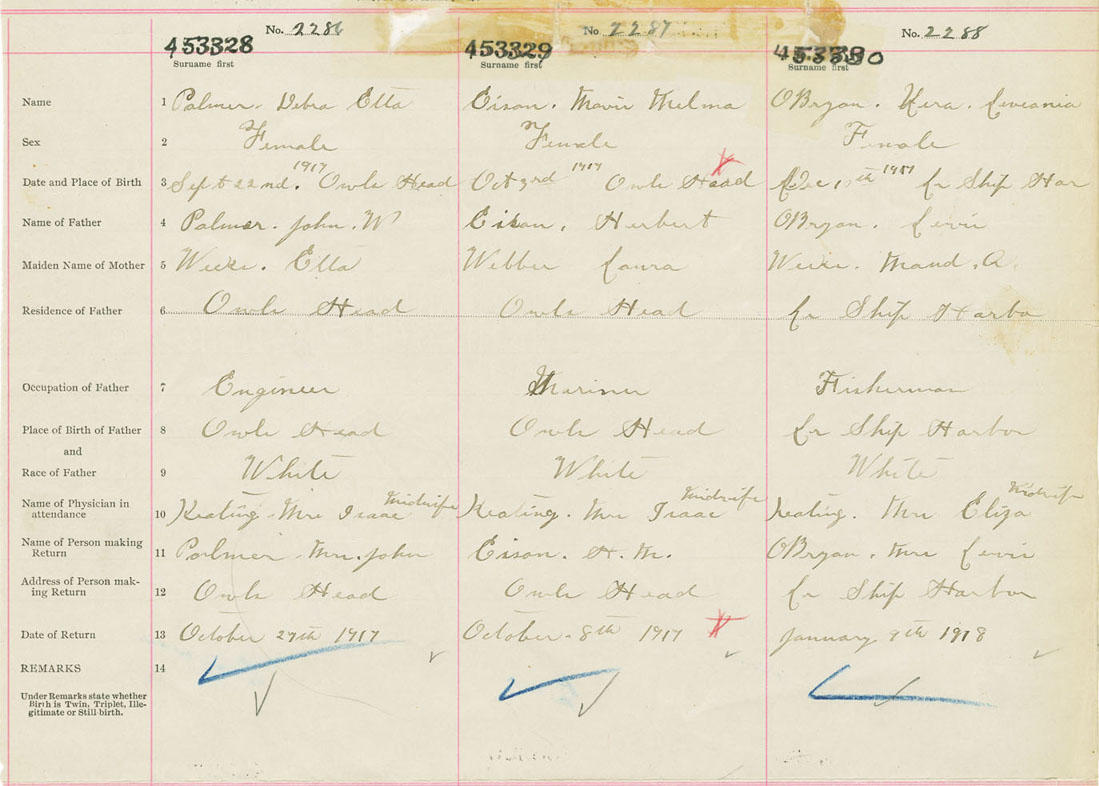 No. 2286 No 2287 No. 2288
453328 453329 453330
Surname first Surname first Surname first
Name 1 Palmer. Debra Etta Eisan. Mavis Thelma OBryan. Vera.
Sex 2 Female Female Female
Date and Place of Birth 3 Sept 22nd. 1917 Owls Head Oct 3rd 1917 Owls Head Dec 1917 Lr Ship Har
Name of Father 4 Palmer. John. W Eisan. Herbert OBryan. Levis
Maiden Name of Mother 5 Weeks. Etta Webber Laura Weeks. Maud. A.
Residence of Father 6 Owls Head Owls Head Lr Ship Harbo
Occupation of Father 7 Engineer Mariner Fisherman
Place of Birth of Father 8 Owls Head Owls Head Lr Ship Harbor
and
Race of Father 9 White White White
Name of Physician in
attendance 10 Keating. Mrs Isaac Midwife Keating. Mrs Isaac Midwife Keating. Mrs Eliza Midwife
Name of Person making
Return 11 Palmer. Mrs. John Eisan. H. M. OBryan. Mrs Levis
Address of Person mak-
ing Return 12 Owls Head Owls Head Lr Ship Harbor
Date of Return 13 October 27th 1917 October. 8th 1917 January 9th 1918
REMARKS 14
Under Remarks state whether
Birth is Twin, Triplet, Ille-
gitimate or Still birth.